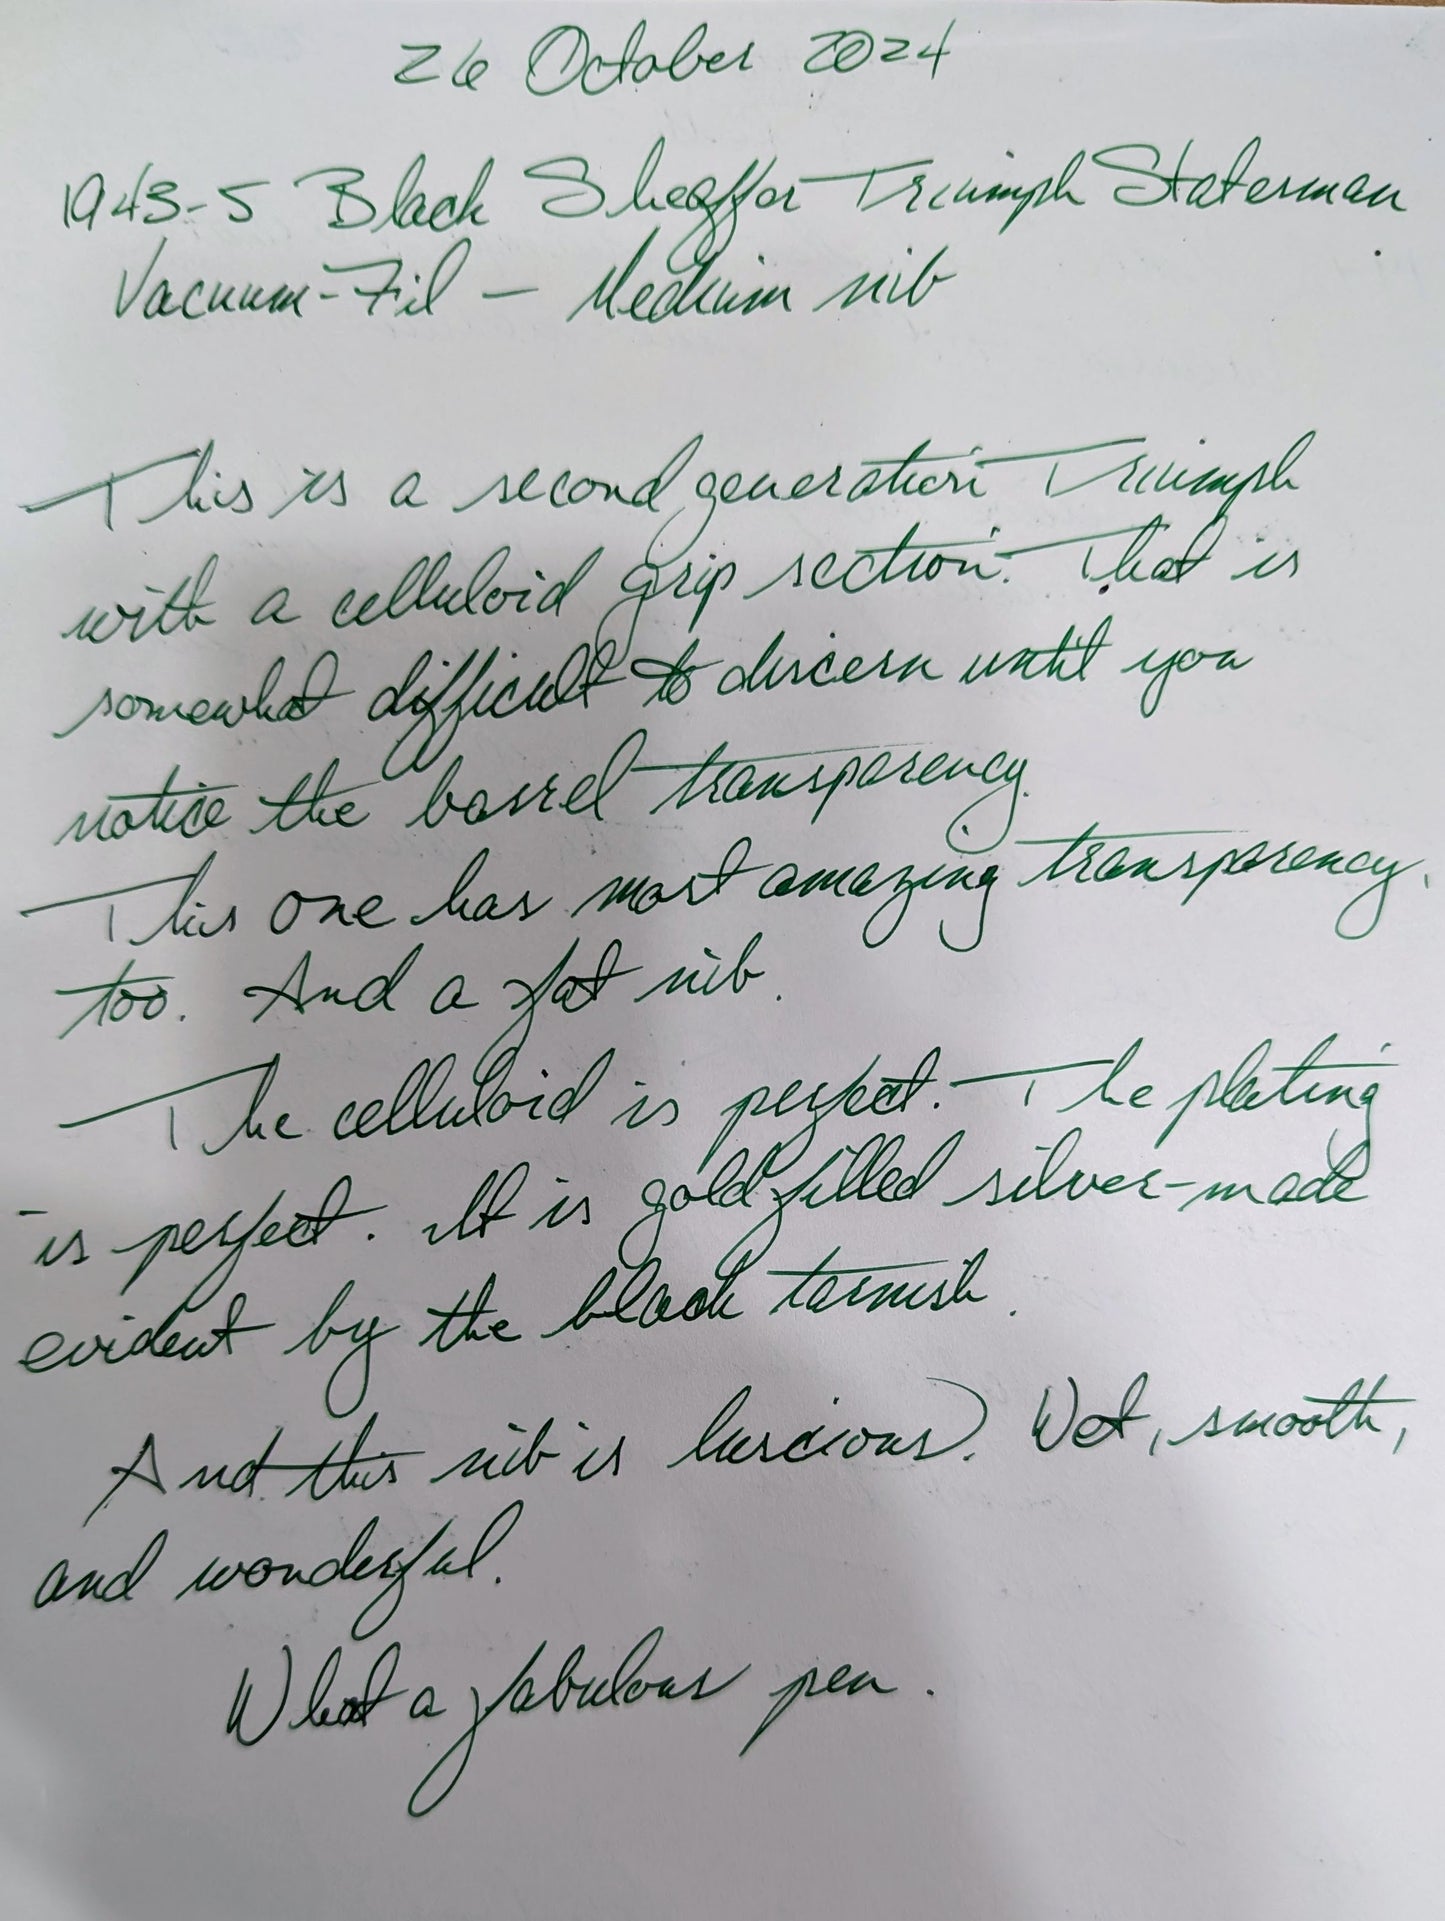 26 October 2024
1943-5 Black Sheaffer Triumph Statesman
Vacuum-Fil — Medium nib
This is a second generation Triumph
with a celluloid grip section. That is
somewhat difficult to discern until you
notice the barrel transparency.
This one has most amazing transparency,
too. And a fat nib.
The celluloid is perfect. The plating
is perfect. It is gold filled silver-made
evident by the black tarnish.
And this nib is luscious. Wet, smooth,
and wonderful.
What a fabulous pen.